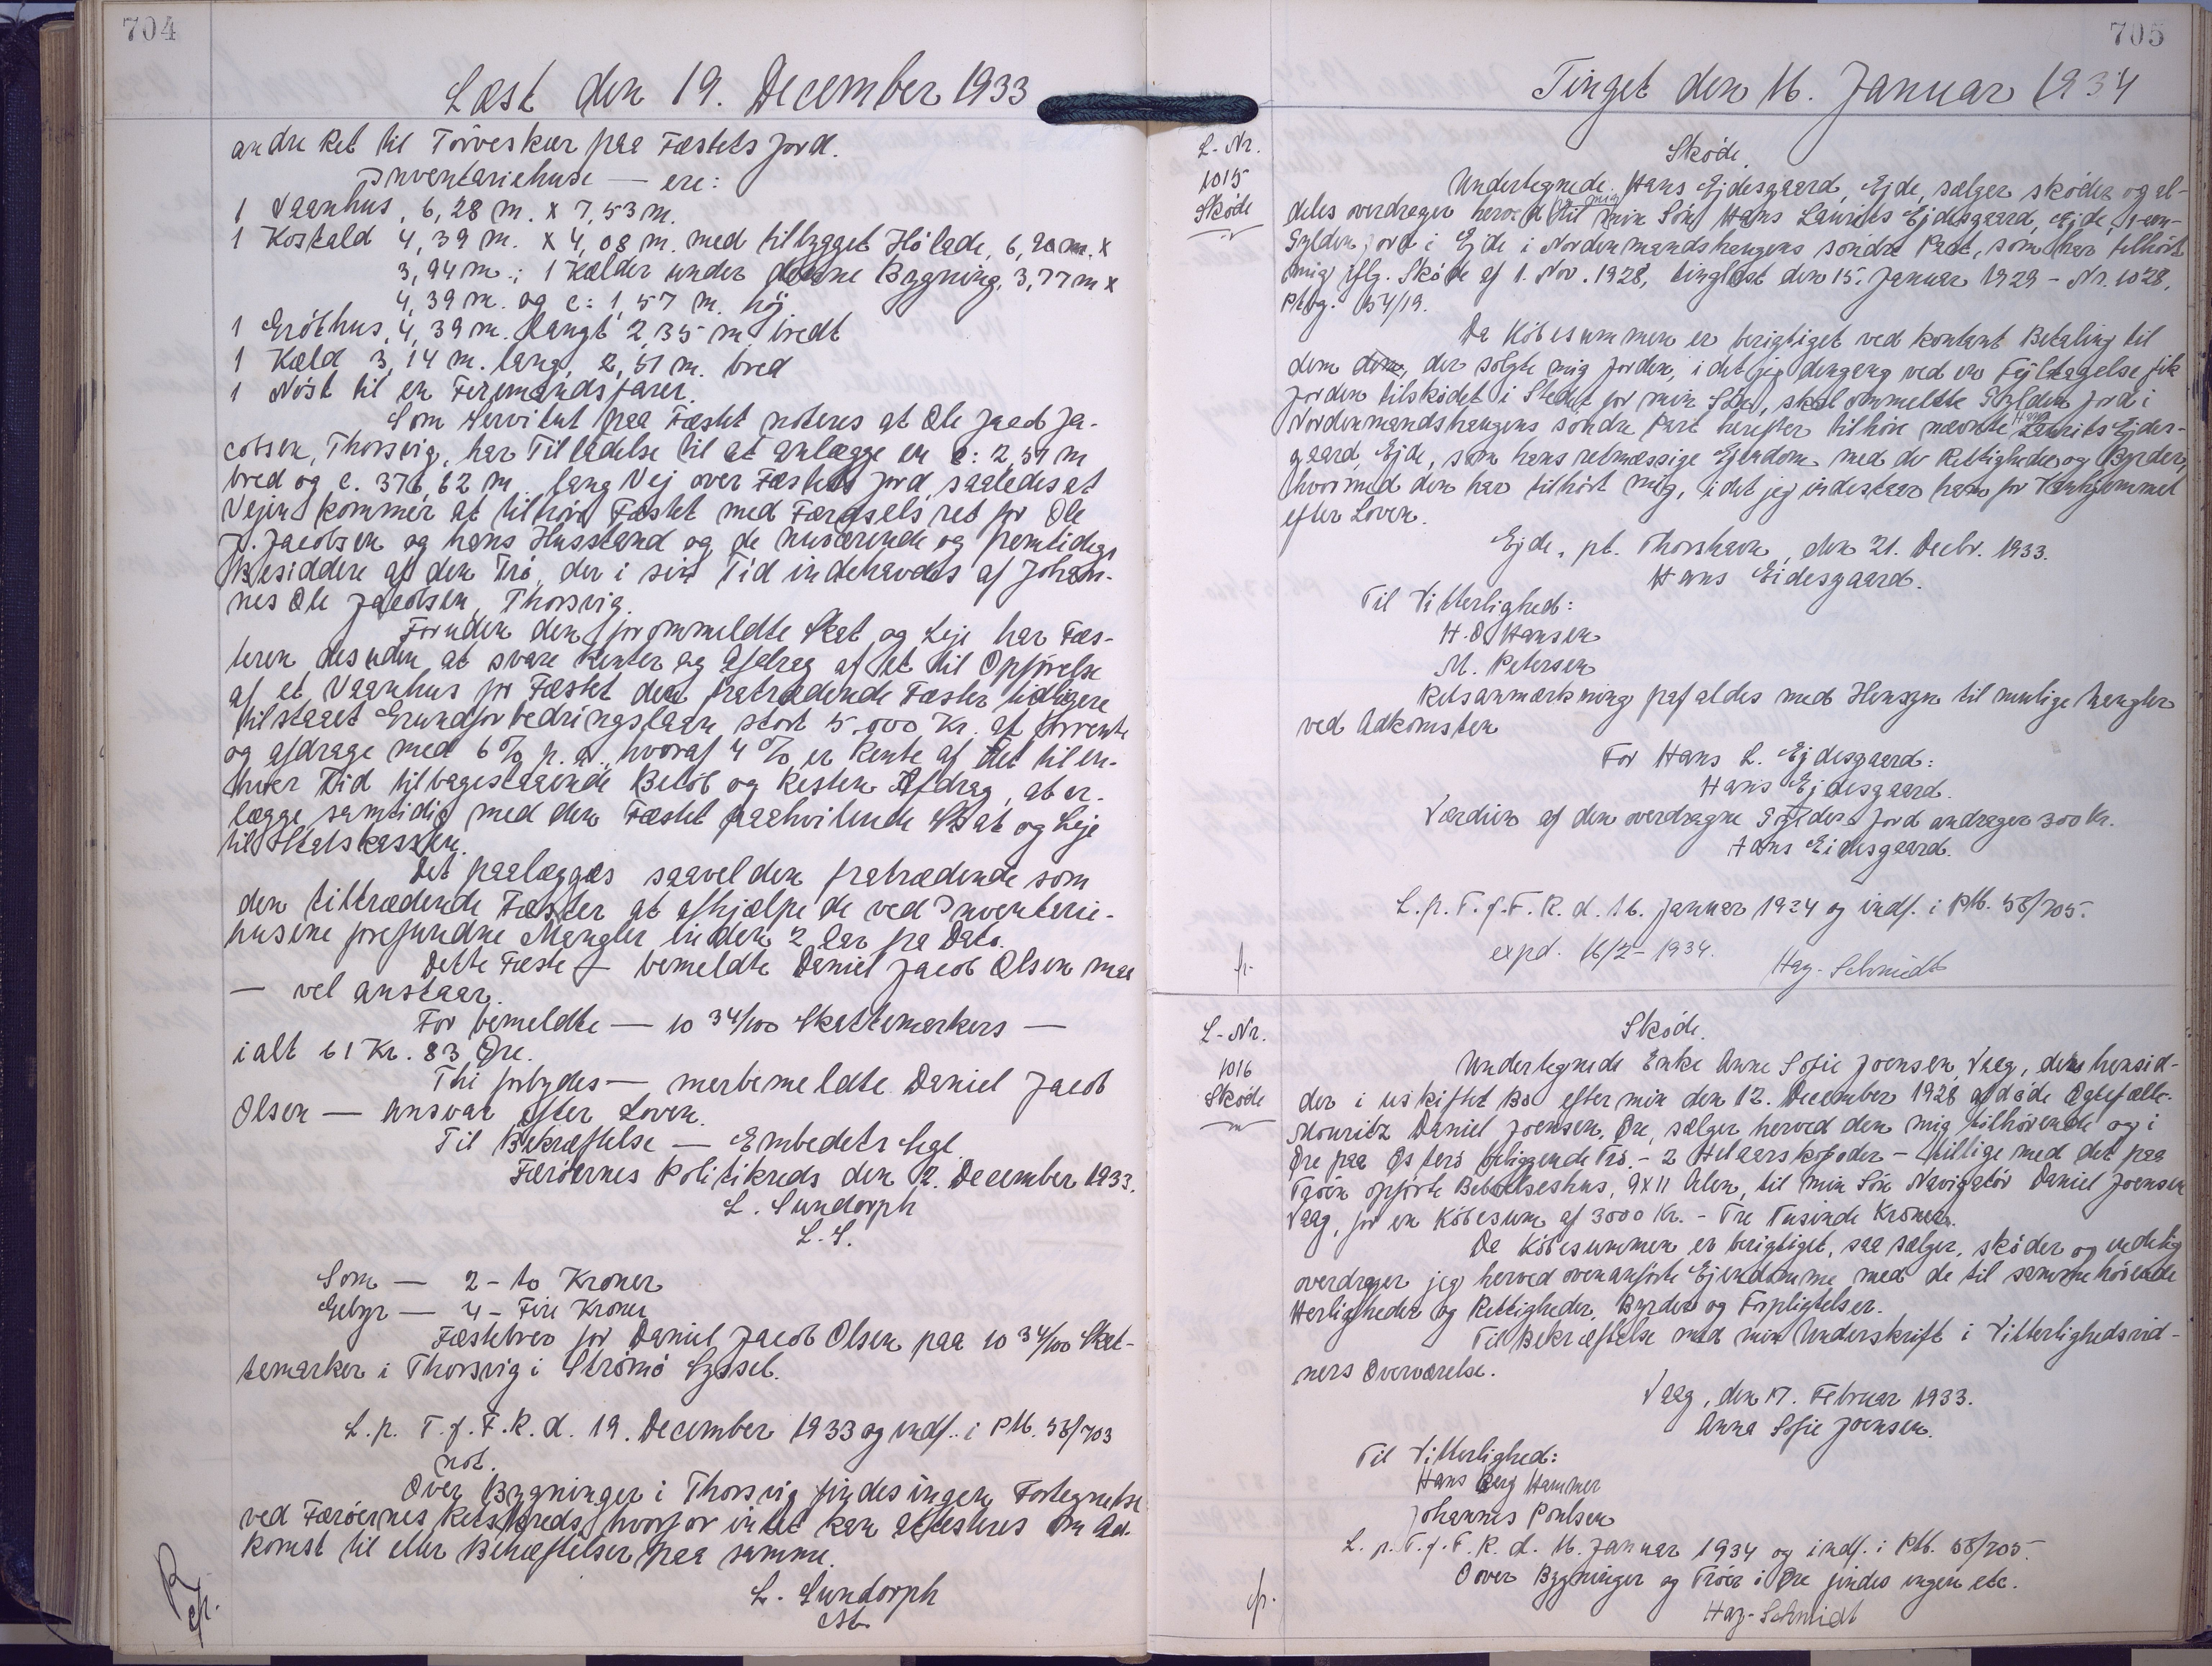 704
Læst den 19. December 1933
andre Ret til Tørveskær paa Fæstets Jord.
Inventariehuse — ere:
1 Vaanhus, 6,28 m. x 7,53 m.
1 Kostald 4,39 m. x 4,08 m. med tilbygget Hølade, 6,90 m. x
3,94 m.; 1 Kælder under denne Bygning, 3,77 m x
4,39 m. og c: 1,57 m. høj
1 Gróthus, 4,39 m. langt 2,35 m. bredt
1 Kæld 3,14 m. lang, 2,51 m. bred
1 Nöst til en Firemandsfarer.
Som Servitut paa Fæstet noteres at Ole Jacob Ja-
cobsen, Thorsvig, har Tilladelse til at anlægge en c: 2,51 m
bred og c. 376,62 m. lang Vej over Fæstets Jord, saaledes at
Vejen kommer at tilhøre Fæstet med Færdselsret for Ole
J. Jacobsen og hans Husstand og de nuværende og fremtidige
Besiddere af den Trö, der i sin Tid indehavdes af Johan-
nes Ole Jacobsen, Thorsvig.
Foruden den forommeldte Skat og Leje har Fæs-
teren desuden at svare Renter og Afdrag af et til Opförelse
af et Vaanhus for Fæstet den fratrædende Fæster tidligere
tilstaaet Grundforbedringslaan stort 5.000 Kr. at forrente
og afdrage med 6% p. a., hvoraf 4% er Rente af det til en-
hver Tid tilbagestaaende Belöb og Resten Afdrag, at er-
lægge samtidig med den Fæstet paahvilende Skat og Leje
til Statskassen.
Det paalægges saavel den fratrædende som
den tiltrædende Fæster at afhjælpe de ved Inventarie-
husene forefundne Mangler inden 2 Aar fra Dato.
Dette Fæste — bemeldte Daniel Jacob Olsen maa
— vel anstaar.
For bemeldte — 10 34/100 Skattemarkers —
ialt 61 Kr. 83 Øre.
Thi forbydes — merbemeldte Daniel Jacob
Olsen — Ansvar efter Loven.
Til Bekræftelse — Embedets Segl.
Færöernes Politikreds den 12. December 1933.
L. Sundorph
L. S.
Som — 2 - to Kroner
Gebyr — 4 - Fire Kroner
Fæstebrev for Daniel Jacob Olsen paa 10 34/100 Skat-
temarker i Thorsvig i Strömö Syssel.
L. p. T. f. F. R. d. 19. December 1933 og indf. i PM. 58/703
not.
Over Bygninger i Thorsvig findes ingen Fortegnelse
ved Færöernes Retskreds, hvorfor intet kan attesteres om Ad-
komst til eller Behæftelser paa samme.
L. Sundorph
705
Tinget den 16. Januar 1934
L.-Nr.
1015
Sköde
Sköde.
Undertegnede Hans Ejdesgaard, Ejde, sælger sköder og al-
deles overdrager herved til min Sön Hans Laurits Ejdesgaard, Ejde, 1-een-
Gylden Jord i Ejde i Nordenmandshaugens söndre Part, som har tilhört
mig iflg. Sköde af 1. Nov. 1928, tinglæst den 15. Januar 1929 - Nr. 1028,
Da Köbesummen er berigtiget ved kontant Betaling til
dem, der solgte mig Jorden, idet jeg dengang ved en Fejltagelse fik
Jorden tilsködet i Stedet for min Sön, skal ommeldte Gylden Jord i
Nordenmandshaugens söndre Part herefter tilhöre nævnte Hans Laurits Ejdes-
gaard, Ejde, som hans retmæssige Ejendom med de Rettigheder og Byrder,
hvormed den har tilhört mig, idet jeg indestaar ham for Vanhjemmel
efter Loven.
Ejde, pt. Thorshavn, den 21. Decbr. 1933.
Hans Eidesgaard.
Til Vitterlighed:
H. D. Hansen
M. Petersen
Retsanmærkning frafaldes med Hensyn til mulige Mangler
ved Adkomsten
For Hans L. Ejdesgaard:
Hans Ejdesgaard.
Værdien af den overdragne Gylden Jord andrager 300 Kr.
Hans Eidesgaard.
L. p. T. f. F. R. d. 16. Januar 1934 og indf. i PM. 58/705.
expd. 16/2 - 1934.
Hag-Schmidt
L-Nr.
1016
Sköde
Sköde.
Undertegnede Enke Anne Sofie Joensen, Vaag, der hensid-
der i uskiftet Bo efter min den 12. December 1928 afdöde Ægtefælle
Mouritz Daniel Joensen, Öre, sælger herved den mig tilhörende og i
Öre paa Österö beliggende Trö - 2 Helaarskofoder - tillige med det paa
Tröen opförte Beboelseshus, 9x11 Alen, til min Sön Navigatör Daniel Joensen
Vaag, for en Köbesum af 3000 Kr. - Tre Tusinde Kroner.
Da Köbesummen er berigtiget, saa sælger, sköder og endelig
overdrager jeg herved ovenanförte Ejendomme med de til samme hörende
Herligheder og Rettigheder, Byrder og Forpligtelser.
Til Bekræftelse med min Underskrift i Vitterlighedsvid-
ners Overværelse.
Vaag, den 17. Februar 1933.
Anna Sofie Joensen.
Til Vitterlighed:
Hans Berg Hammer
Johannes Poulsen
L. p. T. f. F. R. d. 16. Januar 1934 og indf. i PM. 58/705.
Over Bygninger og Tröer i Öre findes ingen etc.
Hag-Schmidt